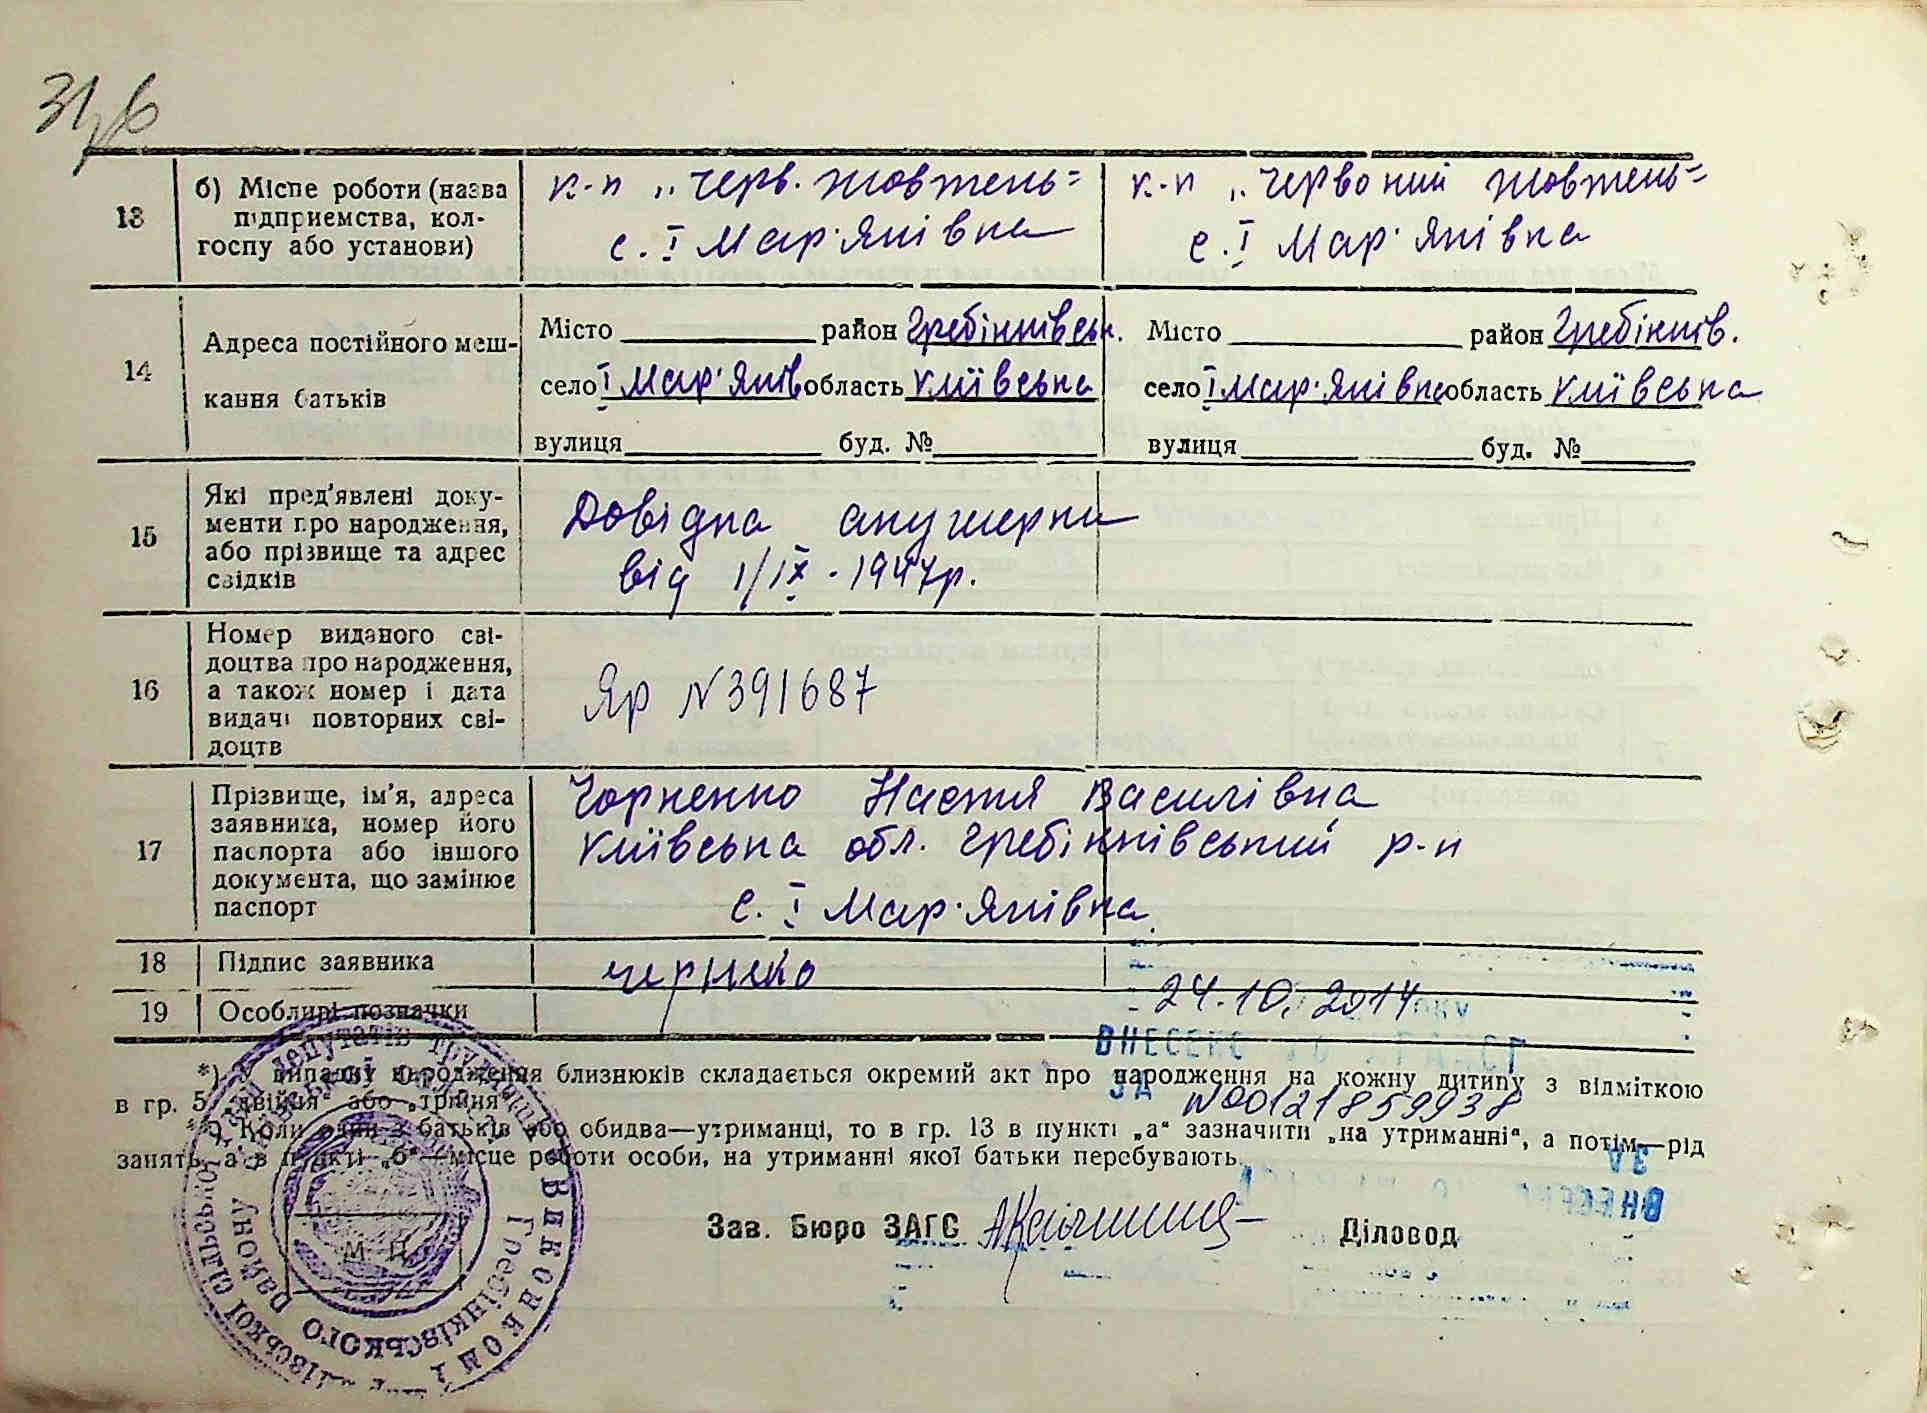 13 б) Місце роботи (назва підприємства, колгоспу або установи)
к-п „Черв. жовтень“
с. І Мар'янівка
к-п „Червоний жовтень“
с. І Мар'янівка
14 Адреса постійного мешкання батьків
Місто район Гребінківськ.
село І Мар'янів область Київська
вулиця буд. №
Місто район Гребінків.
село І Мар'янівка область Київська
вулиця буд. №
15 Які пред'явлені документи про народження, або прізвище та адрес свідків
Довідка акушерки
від 1/ІХ-1947р.
16 Номер виданого свідоцтва про народження, а також номер і дата видачі повторних свідоцтв
Яр N391687
17 Прізвище, ім'я, адреса заявника, номер його паспорта або іншого документа, що замінює паспорт
Чорненко Настя Василівна
Київська обл. Гребінківський р-н
с. І Мар'янівка
18 Підпис заявника
19 Особливі позначки
24.10.2014
ВНЕСЕНО ДО
ЗА N00121859938
*) У випадку народження близнюків складається окремий акт про народження на кожну дитину з відміткою
в гр. 5 „двійня“ або „трійня“.
**) Коли один з батьків або обидва—утриманці, то в гр. 13 в пункті „а“ зазначити „на утриманні“, а потім—рід
занять, а в пункті „б“—місце роботи особи, на утриманні якої батьки перебувають.
Зав. Бюро ЗАГС
Діловод
М П
Виконком
Гребінківського району